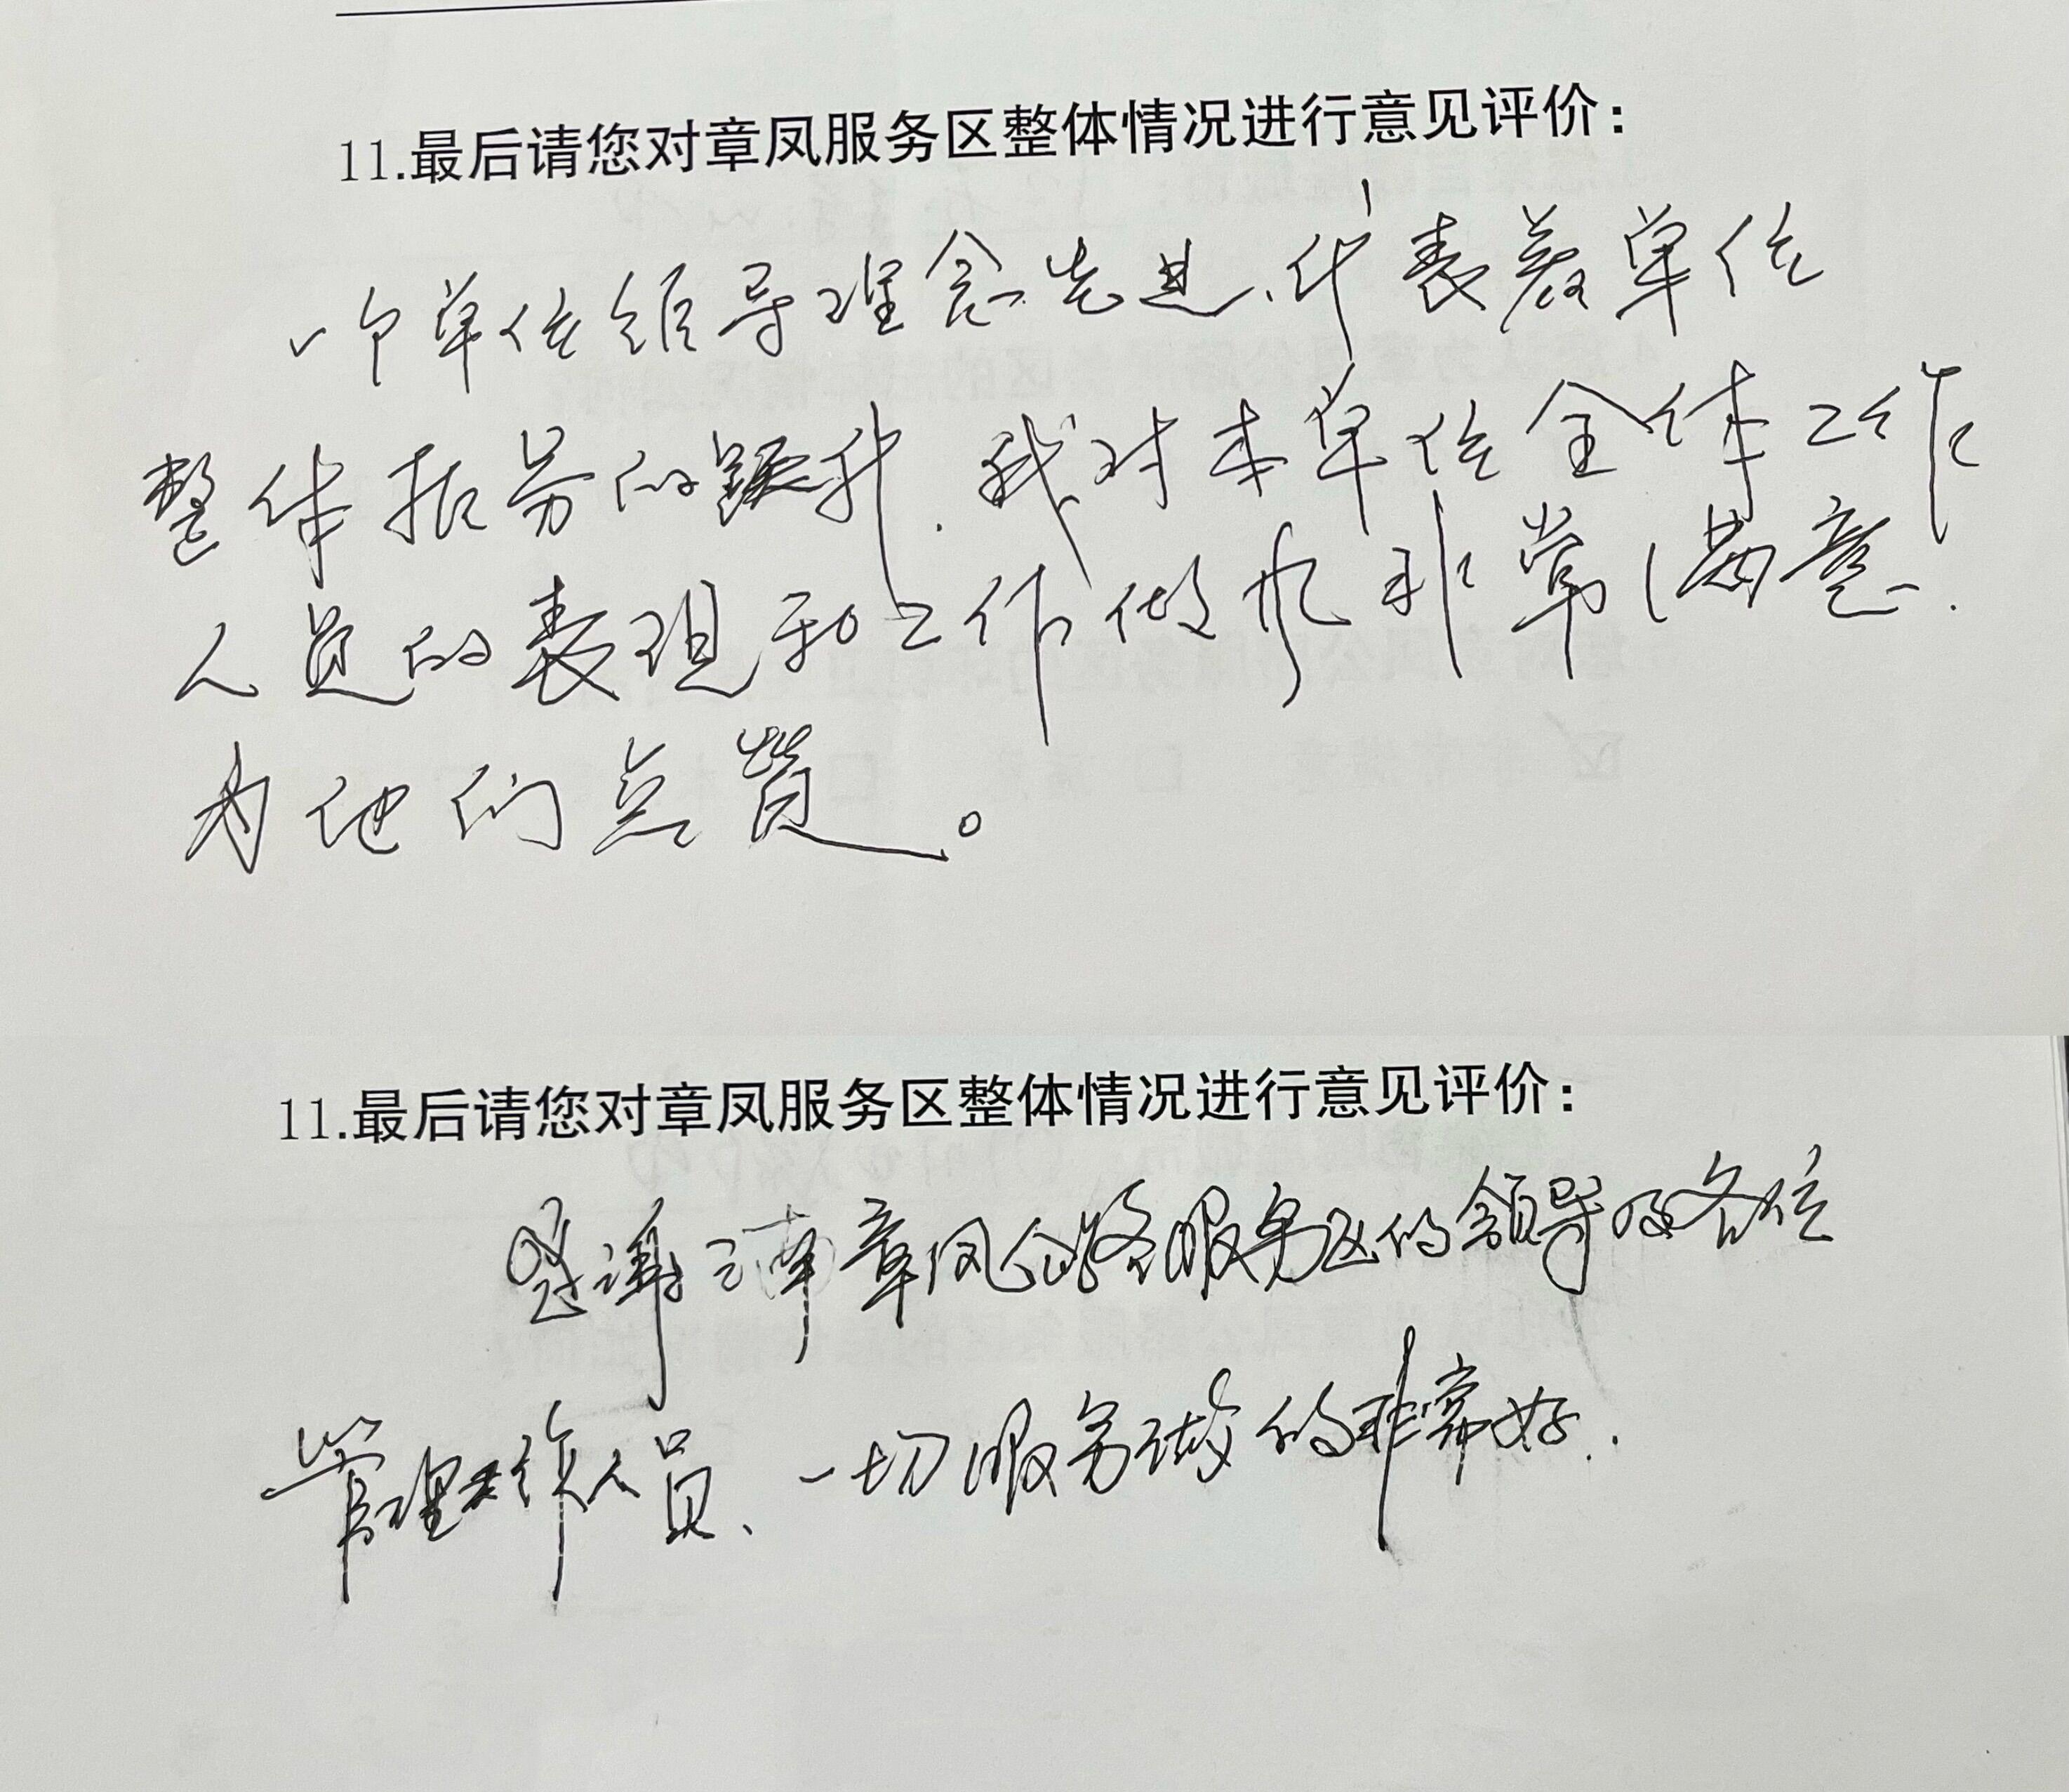 11.最后请您对章凤服务区整体情况进行意见评价：
一个单位领导理念先进、代表着单位
整体服务的跃升.我对本单位全体工作
人员的表现和工作做风非常满意.
为他们点赞。
11.最后请您对章凤服务区整体情况进行意见评价：
感谢云南章凤公路服务区的领导及各位
管理工作人员、一切服务做的非常好.